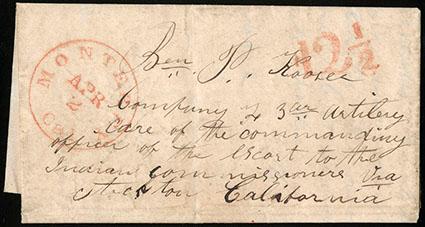 MONTE
APR
2
CAL
12½
Ben P. Kooser
Company F 3rd Artilery
Care of the commanding
officer of the escort to the
Indians commissioners Via
Stockton California